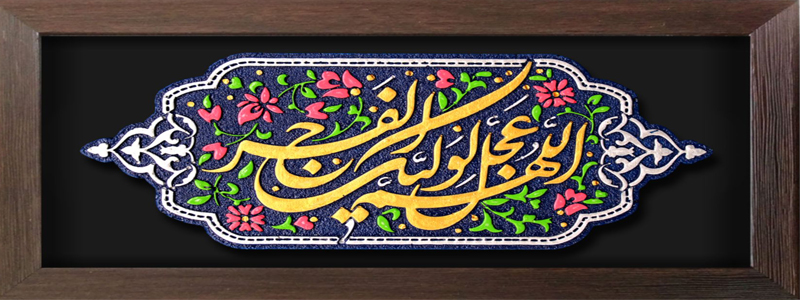 اللهم عجل لولیک الفرج